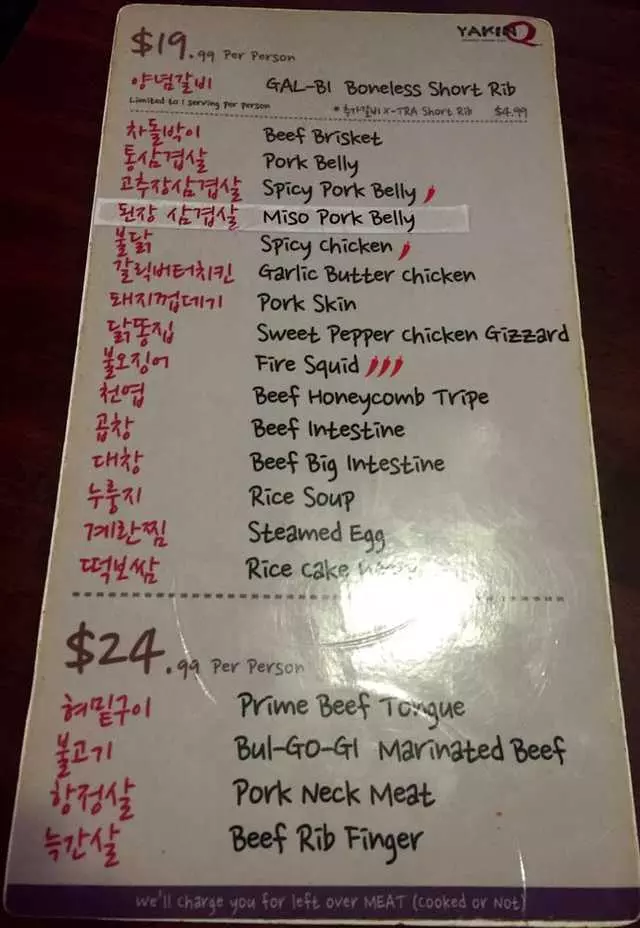 YAKINIQ
$19.99 Per Person
양념갈비 GAL-BI Boneless Short Rib
Limited to 1 serving per person * 추가갈비 X-TRA Short Rib $4.99
차돌박이 Beef Brisket
통삼겹살 Pork Belly
고추장삼겹살 Spicy Pork Belly
된장 삼겹살 Miso Pork Belly
불닭 Spicy Chicken
갈릭버터치킨 Garlic Butter Chicken
돼지껍데기 Pork Skin
닭똥집 Sweet Pepper Chicken Gizzard
불오징어 Fire Squid
천엽 Beef Honeycomb Tripe
곱창 Beef Intestine
대창 Beef Big Intestine
누룽지 Rice Soup
계란찜 Steamed Egg
떡보쌈 Rice Cake
$24.99 Per Person
혀밑구이 Prime Beef Tongue
불고기 Bul-GO-GI Marinated Beef
항정살 Pork Neck Meat
늑간살 Beef Rib Finger
we'll charge you for left over MEAT (Cooked or Not)